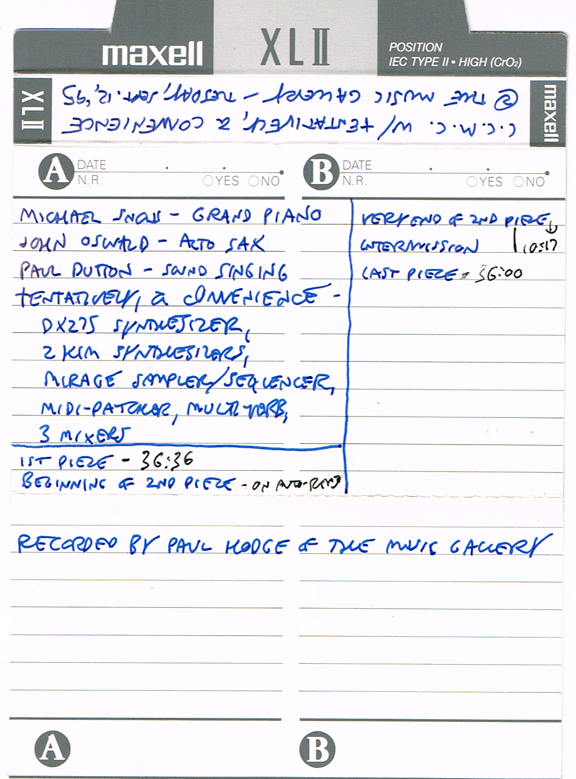 maxell
XLII
POSITION
IEC TYPE II • HIGH (CrO₂)
XLII
maxell
C.C.M.C. W/ TENTATIVELY, A CONVENIENCE
@ THE MUSIC GALLERY - TUESDAY, SEPT. 12, 95
A DATE
N.R. YES NO
B DATE
N.R. YES NO
MICHAEL SNOW - GRAND PIANO
JOHN OSWALD - ALTO SAX
PAUL DUTTON - SOUND SINGING
TENTATIVELY, A CONVENIENCE -
DX27S SYNTHESIZER,
2 KIM SYNTHESIZERS,
MIRAGE SAMPLER/SEQUENCER,
MIDI-PATCHER, MULTI-VERB,
3 MIXERS
1ST PIECE - 36:36
BEGINNING OF 2ND PIECE - ON
VERY END OF 2ND PIECE
INTERMISSION 10:17
LAST PIECE - 36:00
RECORDED BY PAUL HODGE OF THE MUSIC GALLERY
A
B